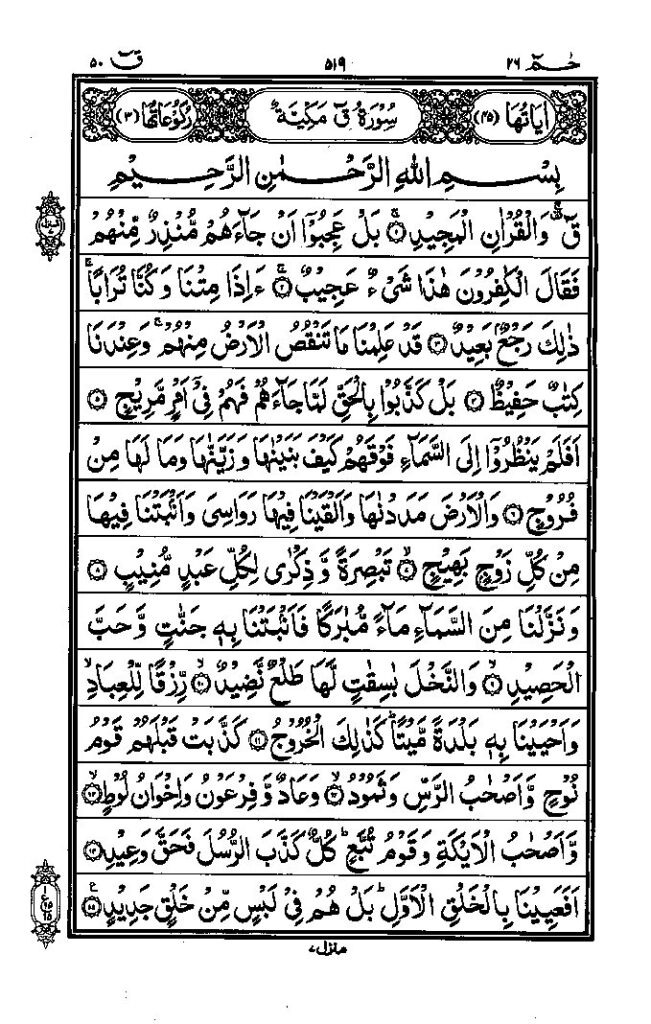 حٰمٓ ۲۶ ۵۱۹ قٓ ۵۰
اٰیَاتُهَا (۴۵) سُوْرَةُ قٓ مَكِّیَّةٌ رُكُوْعَاتُهَا (۳)
بِسْمِ اللهِ الرَّحْمٰنِ الرَّحِیْمِ
قٓ ۚ وَالْقُرْاٰنِ الْمَجِیْدِ ۚ﴿۱﴾ بَلْ عَجِبُوْۤا اَنْ جَآءَهُمْ مُّنْذِرٌ مِّنْهُمْ
فَقَالَ الْكٰفِرُوْنَ هٰذَا شَیْءٌ عَجِیْبٌ ۚ﴿۲﴾ ءَاِذَا مِتْنَا وَكُنَّا تُرَابًا ۚ
ذٰلِكَ رَجْعٌۢ بَعِیْدٌ ﴿۳﴾ قَدْ عَلِمْنَا مَا تَنْقُصُ الْاَرْضُ مِنْهُمْ ۚ وَعِنْدَنَا
كِتٰبٌ حَفِیْظٌ ﴿۴﴾ بَلْ كَذَّبُوْا بِالْحَقِّ لَمَّا جَآءَهُمْ فَهُمْ فِیْۤ اَمْرٍ مَّرِیْجٍ ﴿۵﴾
اَفَلَمْ یَنْظُرُوْۤا اِلَى السَّمَآءِ فَوْقَهُمْ كَیْفَ بَنَیْنٰهَا وَزَیَّنّٰهَا وَمَا لَهَا مِنْ
فُرُوْجٍ ﴿۶﴾ وَالْاَرْضَ مَدَدْنٰهَا وَاَلْقَیْنَا فِیْهَا رَوَاسِیَ وَاَنْۢبَتْنَا فِیْهَا
مِنْ كُلِّ زَوْجٍۭ بَهِیْجٍ ۙ﴿۷﴾ تَبْصِرَةً وَّ ذِكْرٰى لِكُلِّ عَبْدٍ مُّنِیْبٍ ﴿۸﴾
وَنَزَّلْنَا مِنَ السَّمَآءِ مَآءً مُّبٰرَكًا فَاَنْۢبَتْنَا بِهٖ جَنّٰتٍ وَّحَبَّ
الْحَصِیْدِ ۙ﴿۹﴾ وَالنَّخْلَ بٰسِقٰتٍ لَّهَا طَلْعٌ نَّضِیْدٌ ۙ﴿۱۰﴾ رِّزْقًا لِّلْعِبَادِ ۙ
وَاَحْیَیْنَا بِهٖ بَلْدَةً مَّیْتًا ؕ كَذٰلِكَ الْخُرُوْجُ ﴿۱۱﴾ كَذَّبَتْ قَبْلَهُمْ قَوْمُ
نُوْحٍ وَّاَصْحٰبُ الرَّسِّ وَثَمُوْدُ ۙ﴿۱۲﴾ وَعَادٌ وَّ فِرْعَوْنُ وَاِخْوَانُ لُوْطٍ ۙ﴿۱۳﴾
وَّاَصْحٰبُ الْاَیْكَةِ وَقَوْمُ تُبَّعٍ ؕ كُلٌّ كَذَّبَ الرُّسُلَ فَحَقَّ وَعِیْدِ ﴿۱۴﴾
اَفَعَیِیْنَا بِالْخَلْقِ الْاَوَّلِ ؕ بَلْ هُمْ فِیْ لَبْسٍ مِّنْ خَلْقٍ جَدِیْدٍ ۧ﴿۱۵﴾
منزل۷